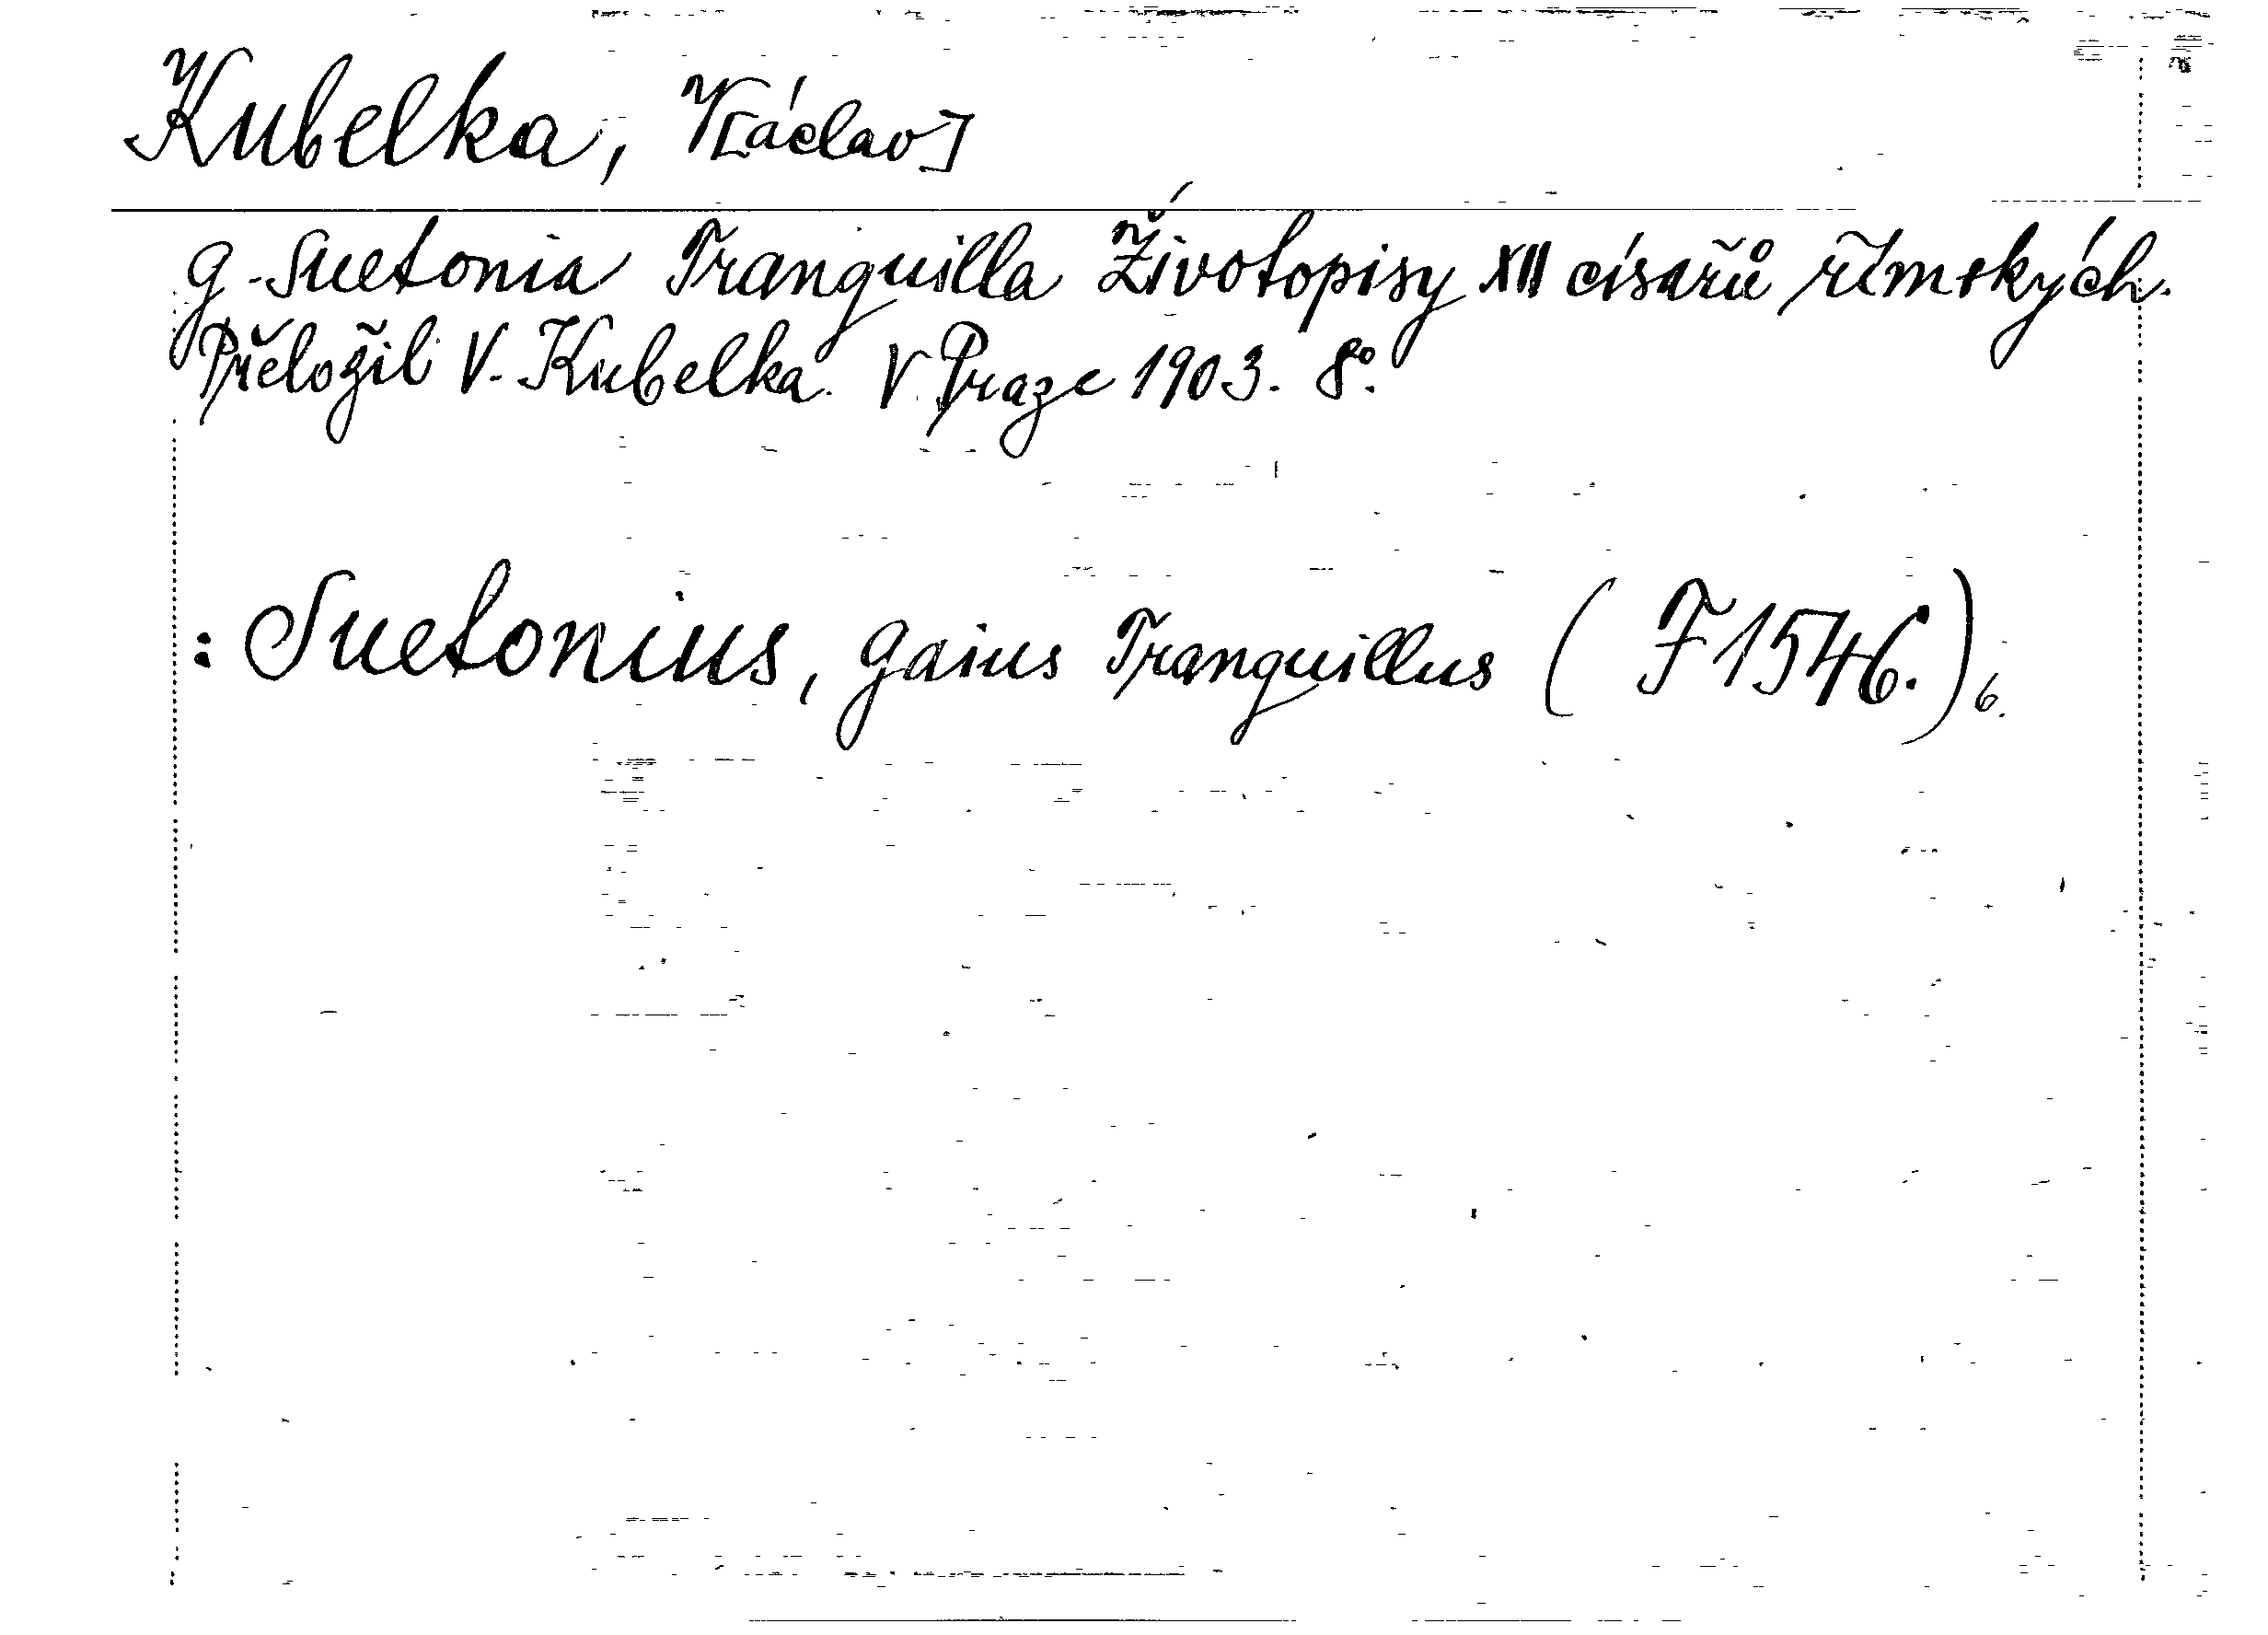 Kubelka, V[áclav]
G. Suetonia Tranquilla Životopisy XII císařů římských.
Přeložil V. Kubelka. V Praze 1903. 8°.
: Suetonius, Gaius Tranquillus (F 1546.) 6.